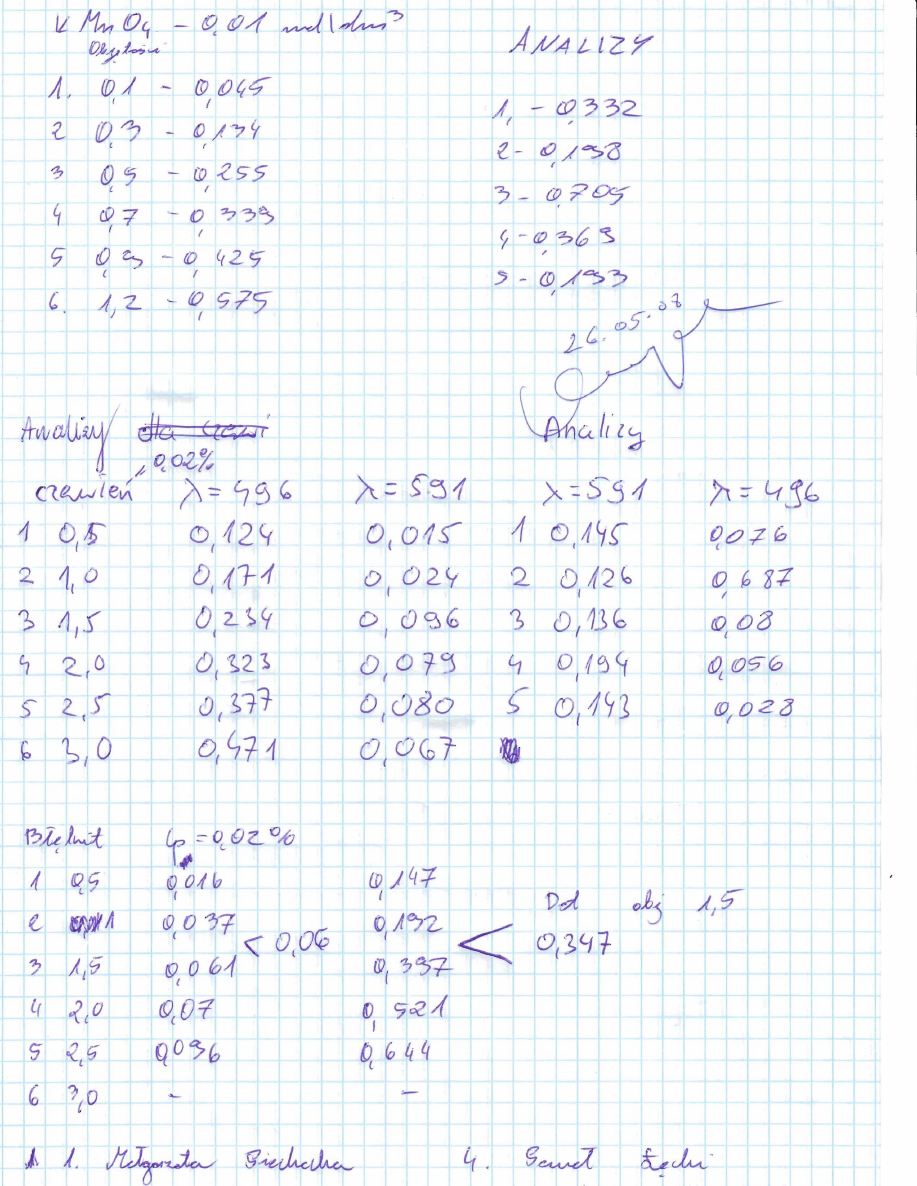 KMnO4 – 0,01 mol/dm³
Objętości
1. 0,1 – 0,045
2 0,3 – 0,134
3 0,5 – 0,255
4 0,7 – 0,339
5 0,9 – 0,425
6. 1,2 – 0,575
ANALIZY
1, – 0,332
2 – 0,198
3 – 0,705
4 – 0,369
5 – 0,193
26.05.08
Analizy
„0,02%
czerwień λ = 496 λ = 591
1 0,5 0,124 0,015
2 1,0 0,171 0,024
3 1,5 0,234 0,096
4 2,0 0,323 0,079
5 2,5 0,377 0,080
6 3,0 0,471 0,067
Analizy
λ = 591 λ = 496
1 0,145 0,076
2 0,126 0,687
3 0,136 0,08
4 0,194 0,056
5 0,143 0,028
Błękit Cp = 0,02%
1 0,5 0,016 0,147
2 1 0,037 0,192
< 0,06 < 0,347
Dod obj 1,5
3 1,5 0,061 0,397
4 2,0 0,07 0,521
5 2,5 0,096 0,644
6 3,0 – –
1. Małgorzata
4.